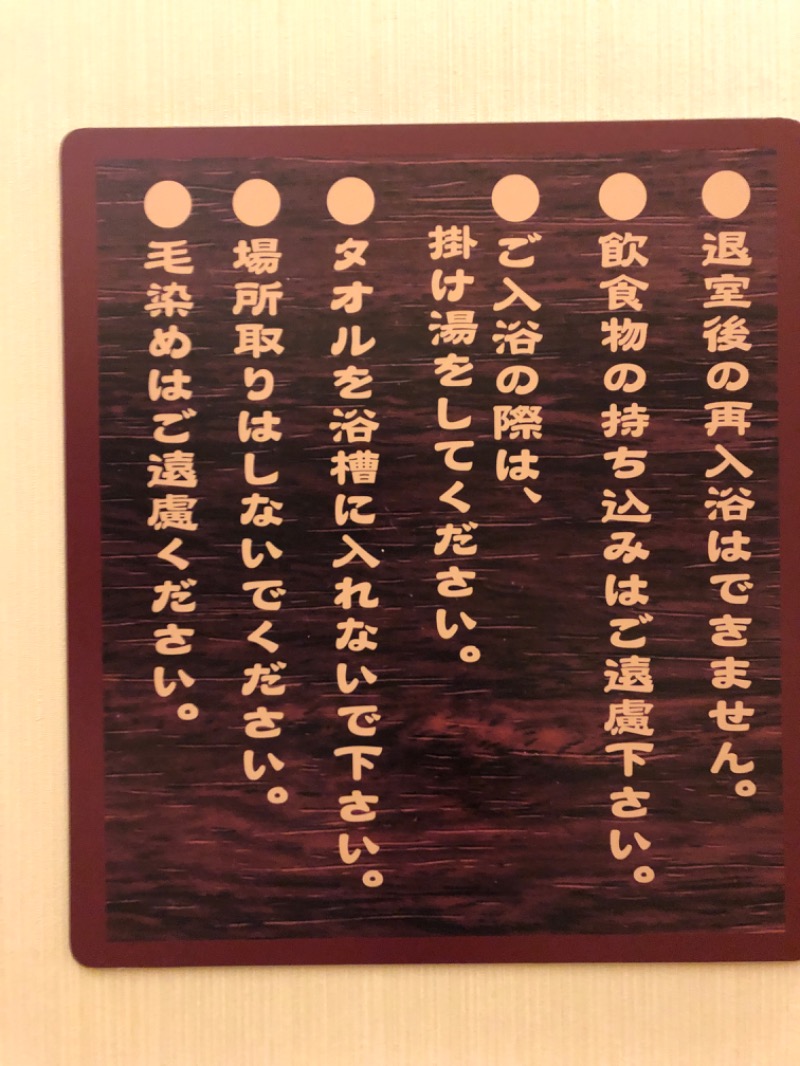 ●退室後の再入浴はできません。
●飲食物の持ち込みはご遠慮下さい。
●ご入浴の際は、
掛け湯をしてください。
●タオルを浴槽に入れないで下さい。
●場所取りはしないでください。
●毛染めはご遠慮ください。